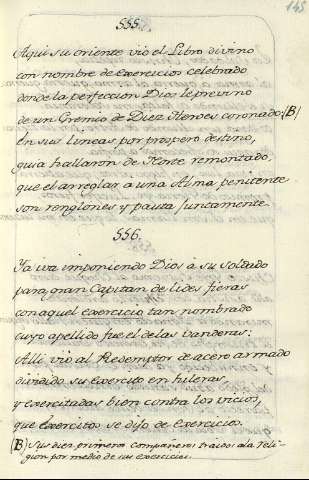 145
555.
Aqui su oriente vió el Libro divino
con nombre de exercicios celebrado
donde la perfeccion Dios le previno
de un Gremio de Diez Heroes coronado: (B)
En sus lineas por prospero destino,
guia hallaron de Norte remontado,
que el arreglar à una Alma penitente
son renglones y pauta juntamente.
556.
Ya iva imponiendo Dios à su soldado
para gran Capitan de lides fieras
con aquel exercicio tan nombrado
cuyo apellido fue el de las vanderas:
Alli vió al Redemptor de acero armado
dividido su exercito en hileras,
y exercitadas bien contra los vicios,
que Exercito se dijo de Exercicio.
(B) Sus diez primeros compañeros traidos a la Reli-
gion por medio de sus exercicios.